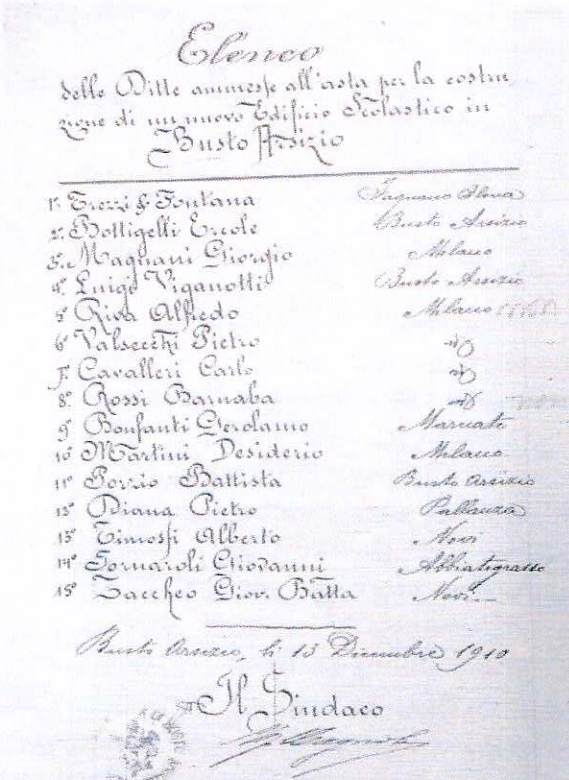 Elenco
delle Ditte ammesse all'asta per la costru
zione di un nuovo Edificio Scolastico in
Busto Arsizio
1° Trezzi & Fontana Fagnano Olona
2° Bottigelli Ercole Busto Arsizio
3° Magnani Giorgio Milano
4° Luigi Viganotti Busto Arsizio
5° Riva Alfredo Milano
6° Valsecchi Pietro id
7° Cavalleri Carlo id
8° Rossi Barnaba id
9° Bonfanti Gerolamo Marnate
10° Martini Desiderio Milano
11° Porzio Battista Busto Arsizio
12° Diana Pietro Pallanza
13° Timossi Alberto Novi
14° Fornaroli Giovanni Abbiategrasso
15° Saccheo Giov. Batta Novi
Busto Arsizio, li 13 Dicembre 1910
Il Sindaco